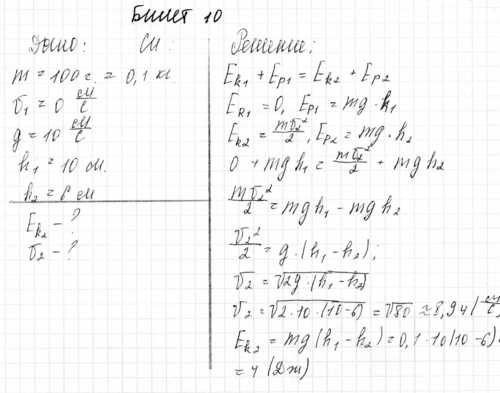 Билет 10
Дано: Си:
m = 100 г. = 0,1 кг
v₁ = 0 м/с
g = 10 м/с
h₁ = 10 м.
h₂ = 6 м
Eₖ₂ - ?
v₂ - ?
Решение:
Eₖ₁ + Eₚ₁ = Eₖ₂ + Eₚ₂
Eₖ₁ = 0, Eₚ₁ = mg·h₁
Eₖ₂ = mv₂²/2, Eₚ₂ = mg·h₂
0 + mgh₁ = mv₂²/2 + mgh₂
mv₂²/2 = mgh₁ - mgh₂
v₂²/2 = g·(h₁ - h₂);
v₂ = √2g·(h₁ - h₂)
v₂ = √2·10·(10-6) = √80 ≈ 8,94 (м/с)
Eₖ₂ = mg(h₁ - h₂) = 0,1·10(10-6)=
= 4 (Дж)